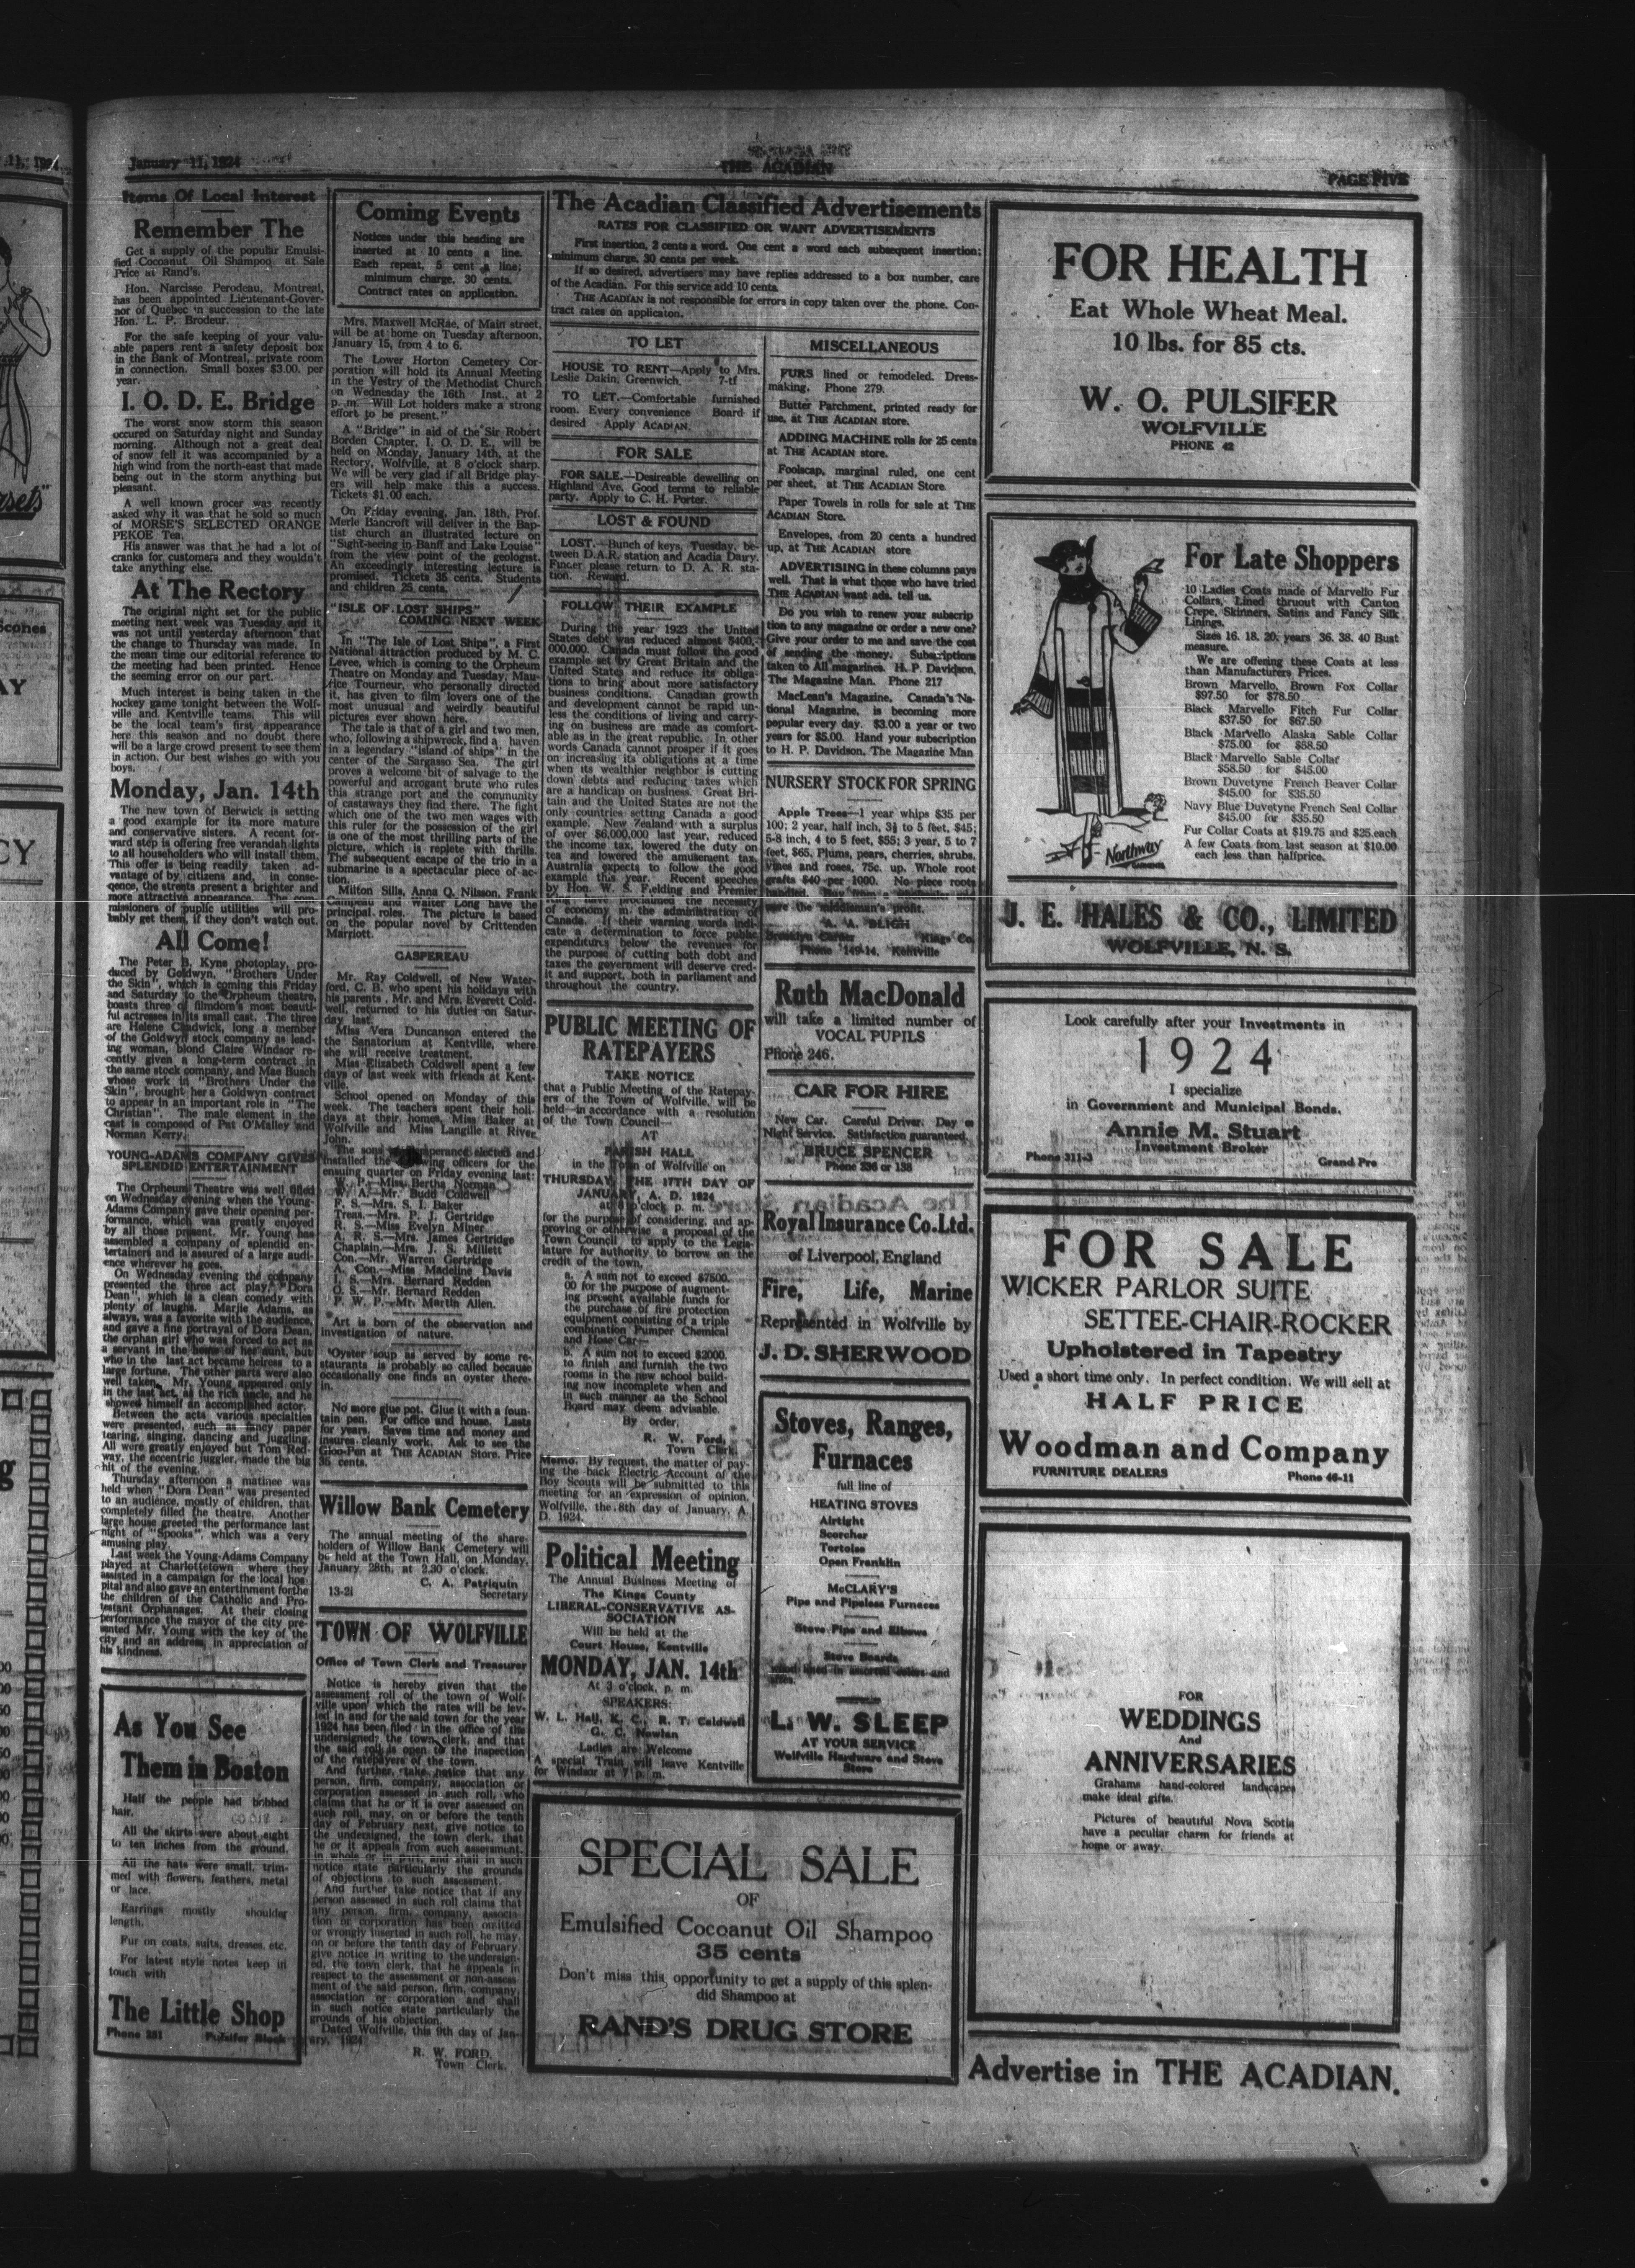 January 11, 1924
THE ACADIAN
PAGE FIVE
Items Of Local Interest
Remember The
Get a supply of the popular Emulsi-
fied Cocoanut Oil Shampoo at Sale
Price at Rand's.
Hon. Narcisse Perodeau, Montreal,
has been appointed Lieutenant-Gover-
nor of Quebec in succession to the late
Hon. L. P. Brodeur.
For the safe keeping of your valu-
able papers rent a safety deposit box
in the Bank of Montreal, private room
in connection. Small boxes $3.00. per
year.
I. O. D. E. Bridge
The worst snow storm this season
occured on Saturday night and Sunday
morning. Although not a great deal
of snow fell it was accompanied by a
high wind from the north-east that made
being out in the storm anything but
pleasant.
A well known grocer was recently
asked why it was that he sold so much
of MORSE'S SELECTED ORANGE
PEKOE Tea.
His answer was that he had a lot of
cranks for customers and they wouldn't
take anything else.
At The Rectory
The original night set for the public
meeting next week was Tuesday and it
was not until yesterday afternoon that
the change to Thursday was made. In
the mean time our editorial reference to
the meeting had been printed. Hence
the seeming error on our part.
Much interest is being taken in the
hockey game tonight between the Wolf-
ville and Kentville teams. This will
be the local team's first appearance
here this season and no doubt there
will be a large crowd present to see them
in action. Our best wishes go with you
boys.
Monday, Jan. 14th
The new town of Berwick is setting
a good example for its more mature
and conservative sisters. A recent for-
ward step is offering free verandah lights
to all householders who will install them.
This offer is being readily taken ad-
vantage of by citizens and, in conse-
qence, the streets present a brighter and
more attractive appearance. The com-
missioners of public utilities will pro-
bably get them, if they don't watch out.
All Come!
The Peter B. Kyne photoplay, pro-
duced by Goldwyn, "Brothers Under
the Skin", which is coming this Friday
and Saturday to the Orpheum theatre,
boasts three of filmdom's most beauti-
ful actresses in its small cast. The three
are Helene Chadwick, long a member
of the Goldwyn stock company as lead-
ing woman, blond Claire Windsor re-
cently given a long-term contract in
the same stock company, and Mae Busch
whose work in "Brothers Under the
Skin", brought her a Goldwyn contract
to appear in an important role in "The
Christian". The male element in the
cast is composed of Pat O'Malley and
Norman Kerry.
YOUNG-ADAMS COMPANY GIVES
SPLENDID ENTERTAINMENT
The Orpheum Theatre was well filled
on Wednesday evening when the Young-
Adams Company gave their opening per-
formance, which was greatly enjoyed
by all those present. Mr. Young has
assembled a company of splendid en-
tertainers and is assured of a large audi-
ence wherever he goes.
On Wednesday evening the company
presented the three act play, "Dora
Dean", which is a clean comedy with
plenty of laughs. Marjie Adams, as
always, was a favorite with the audience,
and gave a fine portrayal of Dora Dean,
the orphan girl who was forced to act as
a servant in the home of her aunt, but
who in the last act became heiress to a
large fortune. The other parts were also
well taken. Mr. Young appeared only
in the last act, as the rich uncle, and he
showed himself an accomplished actor.
Between the acts various specialties
were presented, such as fancy paper
tearing, singing, dancing and juggling.
All were greatly enjoyed but Tom Red-
way, the eccentric juggler, made the big
hit of the evening.
Thursday afternoon a matinee was
held when "Dora Dean" was presented
to an audience, mostly of children, that
completely filled the theatre. Another
large house greeted the performance last
night of "Spooks", which was a very
amusing play.
Last week the Young-Adams Company
played at Charlottetown where they
assisted in a campaign for the local hos-
pital and also gave an entertinment forthe
the children of the Catholic and Pro-
testant Orphanages. At their closing
performance the mayor of the city pre-
sented Mr. Young with the key of the
city and an address, in appreciation of
his kindness.
As You See
Them in Boston
Half the people had bobbed
hair.
All the skirts were about eight
to ten inches from the ground.
All the hats were small, trim-
med with flowers, feathers, metal
or lace.
Earrings mostly shoulder
length.
Fur on coats, suits, dresses, etc.
For latest style notes keep in
touch with
The Little Shop
Phone 231 Pulsifer Block
Coming Events
Notices under this heading are
inserted at 10 cents a line.
Each repeat, 5 cent a line;
minimum charge, 30 cents.
Contract rates on application.
Mrs. Maxwell McRae, of Main street,
will be at home on Tuesday afternoon,
January 15, from 4 to 6.
The Lower Horton Cemetery Cor-
poration will hold its Annual Meeting
in the Vestry of the Methodist Church
on Wednesday the 16th Inst., at 2
p. m. Will Lot holders make a strong
effort to be present."
A "Bridge" in aid of the Sir Robert
Borden Chapter, I. O. D. E., will be
held on Monday, January 14th, at the
Rectory, Wolfville, at 8 o'clock sharp.
We will be very glad if all Bridge play-
ers will help make this a success.
Tickets $1.00 each.
On Friday evening, Jan. 18th, Prof.
Merle Bancroft will deliver in the Bap-
tist church an illustrated lecture on
"Sight-seeing in Banff and Lake Louise"
from the view point of the geologist.
An exceedingly interesting lecture is
promised. Tickets 35 cents. Students
and children 25 cents.
"ISLE OF LOST SHIPS"
COMING NEXT WEEK
In "The Isle of Lost Ships", a First
National attraction produced by M. C.
Levee, which is coming to the Orpheum
Theatre on Monday and Tuesday, Mau-
rice Tourneur, who personally directed
it, has given to film lovers one of the
most unusual and weirdly beautiful
pictures ever shown here.
The tale is that of a girl and two men,
who, following a shipwreck, find a haven
in a legendary "island of ships" in the
center of the Sargasso Sea. The girl
proves a welcome bit of salvage to the
powerful and arrogant brute who rules
this strange port and the community
of castaways they find there. The fight
which one of the two men wages with
this ruler for the possession of the girl
is one of the most thrilling parts of the
picture, which is replete with thrills.
The subsequent escape of the trio in a
submarine is a spectacular piece of ac-
tion.
Milton Sills, Anna Q. Nilsson, Frank
Campeau and Walter Long have the
principal roles. The picture is based
on the popular novel by Crittenden
Marriott.
GASPEREAU
Mr. Ray Coldwell, of New Water-
ford, C. B. who spent his holidays with
his parents, Mr. and Mrs. Everett Cold-
well, returned to his duties on Satur-
day last.
Miss Vera Duncanson entered the
the Sanatorium at Kentville, where
she will receive treatment.
Miss Elizabeth Coldwell spent a few
days of last week with friends at Kent-
ville.
School opened on Monday of this
week. The teachers spent their holi-
days at their homes, Miss Baker at
Wolfville and Miss Langille at River
John.
The sons of Temperance elected and
installed the following officers for the
ensuing quarter on Friday evening last:
W. P.—Miss Bertha Norman
W. A.—Mr. Budd Coldwell
F. S.—Mrs. S. I. Baker
Treas.—Mrs. P. J. Gertridge
R. S.—Miss Evelyn Miner
A. R. S.—Mrs. James Gertridge
Chaplain—Mrs. J. S. Millett
Con.—Mr. Warren Gertridge
A. Con.—Miss Madeline Davis
I. S.—Mrs. Bernard Redden
O. S.—Mr. Bernard Redden
P. W. P.—Mr. Martin Allen.
Art is born of the observation and
investigation of nature.
Oyster soup as served by some re-
staurants is probably so called because
occasionally one finds an oyster there-
in.
No more glue pot. Glue it with a foun-
tain pen. For office and house. Lasts
for years. Saves time and money and
insures cleanly work. Ask to see the
Gloo-Pen at THE ACADIAN Store. Price
35 cents.
Willow Bank Cemetery
The annual meeting of the share-
holders of Willow Bank Cemetery will
be held at the Town Hall, on Monday,
January 28th, at 2.30 o'clock.
C. A. Patriquin
13-2i Secretary
TOWN OF WOLFVILLE
Office of Town Clerk and Treasurer
Notice is hereby given that the
assessment roll of the town of Wolf-
ville upon which the rates will be lev-
ied in and for the said town for the year
1924 has been filed in the office of the
undersigned, the town clerk, and that
the said roll is open to the inspection
of the ratepayers of the town.
And further take notice that any
person, firm, company, association or
corporation assessed in such roll, who
claims that he or it is over assessed on
such roll, may, on or before the tenth
day of February next, give notice to
the undersigned, the town clerk, that
he or it appeals from such assessment,
in whole or in part, and shall in such
notice state particularly the grounds
of objections to such assessment.
And further take notice that if any
person assessed in such roll claims that
any person, firm, company, associa-
tion or corporation has been omitted
or wrongly inserted in such roll, he may,
on or before the tenth day of February,
give notice in writing to the undersign-
ed, the town clerk, that he appeals in
respect to the assessment or non-assess-
ment of the said person, firm, company,
association or corporation and shall
in such notice state particularly the
grounds of his objection.
Dated Wolfville, this 9th day of Jan-
uary, 1924.
R. W. FORD,
Town Clerk.
The Acadian Classified Advertisements
RATES FOR CLASSIFIED OR WANT ADVERTISEMENTS
First insertion, 2 cents a word. One cent a word each subsequent insertion;
minimum charge, 30 cents per week.
If so desired, advertisers may have replies addressed to a box number, care
of the Acadian. For this service add 10 cents.
THE ACADIAN is not responsible for errors in copy taken over the phone. Con-
tract rates on applicaton.
TO LET
HOUSE TO RENT—Apply to Mrs.
Leslie Dakin, Greenwich. 7-tf
TO LET.—Comfortable furnished
room. Every convenience Board if
desired Apply ACADIAN.
FOR SALE
FOR SALE.—Desireable dewelling on
Highland Ave. Good terms to reliable
party. Apply to C. H. Porter.
LOST & FOUND
LOST.—Bunch of keys, Tuesday, be-
tween D.A.R. station and Acadia Dairy.
Finder please return to D. A. R. sta-
tion. Reward.
FOLLOW THEIR EXAMPLE
During the year 1923 the United
States debt was reduced almost $400,-
000,000. Canada must follow the good
example set by Great Britain and the
United States and reduce its obliga-
tions to bring about more satisfactory
business conditions. Canadian growth
and development cannot be rapid un-
less the conditions of living and carry-
ing on business are made as comfort-
able as in the great republic. In other
words Canada cannot prosper if it goes
on increasing its obligations at a time
when its wealthier neighbor is cutting
down debts and reducing taxes which
are a handicap on business. Great Bri-
tain and the United States are not the
only countries setting Canada a good
example. New Zealand with a surplus
of over $6,000,000 last year, reduced
the income tax, lowered the duty on
tea and lowered the amusement tax.
Australia expects to follow the good
example this year. Recent speeches
by Hon. W. S. Fielding and Premier
King have proclaimed the necessity
of economy in the administration of
Canada. If their warning words indi-
cate a determination to force public
expenditures below the revenues for
the purpose of cutting both debt and
taxes the government will deserve cred-
it and support, both in parliament and
throughout the country.
PUBLIC MEETING OF
RATEPAYERS
TAKE NOTICE
that a Public Meeting of the Ratepay-
ers of the Town of Wolfville, will be
held—in accordance with a resolution
of the Town Council—
AT
PARISH HALL
in the Town of Wolfville on
THURSDAY, THE 17TH DAY OF
JANUARY, A. D. 1924
at 8 o'clock p. m.
for the purpose of considering, and ap-
proving or otherwise, a proposal of the
Town Council to apply to the Legis-
lature for authority to borrow on the
credit of the town.
a. A sum not to exceed $7500.
00 for the purpose of augment-
ing present available funds for
the purchase of fire protection
equipment consisting of a triple
combination Pumper Chemical
and Hose Car—
b. A sum not to exceed $2000.
to finish and furnish the two
rooms in the new school build-
ing now incomplete when and
in such manner as the School
Board may deem advisable.
By order,
R. W. Ford,
Town Clerk.
Memo. By request, the matter of pay-
ing the back Electric Account of the
Boy Scouts will be submitted to this
meeting for an expression of opinion.
Wolfville, the 8th day of January, A.
D. 1924.
Political Meeting
The Annual Business Meeting of
The Kings County
LIBERAL-CONSERVATIVE AS-
SOCIATION
Will be held at the
Court House, Kentville
MONDAY, JAN. 14th
At 3 o'clock, p. m.
SPEAKERS:
W. L. Hall, K. C., R. T. Caldwell
G. C. Nowlan
Ladies are Welcome
A special Train will leave Kentville
for Windsor at 7 p. m.
MISCELLANEOUS
FURS lined or remodeled. Dress-
making. Phone 279.
Butter Parchment, printed ready for
use, at THE ACADIAN store.
ADDING MACHINE rolls for 25 cents
at THE ACADIAN store.
Foolscap, marginal ruled, one cent
per sheet, at THE ACADIAN Store.
Paper Towels in rolls for sale at THE
ACADIAN Store.
Envelopes, from 20 cents a hundred
up, at THE ACADIAN store
ADVERTISING in these columns pays
well. That is what those who have tried
THE ACADIAN want ads. tell us.
Do you wish to renew your subscrip
tion to any magazine or order a new one?
Give your order to me and save the cost
of sending the money. Subscriptions
taken to All magazines. H. P. Davidson,
The Magazine Man. Phone 217
MacLean's Magazine, Canada's Na-
tional Magazine, is becoming more
popular every day. $3.00 a year or two
years for $5.00. Hand your subscription
to H. P. Davidson, The Magazine Man
NURSERY STOCK FOR SPRING
Apple Trees—1 year whips $35 per
100; 2 year, half inch, 3½ to 5 feet, $45;
5-8 inch, 4 to 5 feet, $55; 3 year, 5 to 7
feet, $65. Plums, pears, cherries, shrubs,
vines and roses, 75c. up. Whole root
grafts $40 per 1000. No piece roots
save the middleman's profit.
A. A. BLIGH
Brooklyn Corner Kings Co.
Phone 149-14, Kentville
Ruth MacDonald
will take a limited number of
VOCAL PUPILS
Phone 246.
CAR FOR HIRE
New Car. Careful Driver. Day or
Night Service. Satisfaction guaranteed.
BRUCE SPENCER
Phone 236 or 138
Royal Insurance Co. Ltd.
of Liverpool, England
Fire, Life, Marine
Represented in Wolfville by
J. D. SHERWOOD
Stoves, Ranges,
Furnaces
full line of
HEATING STOVES
Airtight
Scorcher
Tortoise
Open Franklin
McCLARY'S
Pipe and Pipeless Furnaces
Stove Pipe and Elbows
Stove Boards
L. W. SLEEP
AT YOUR SERVICE
Wolfville Hardware and Stove
Store
SPECIAL SALE
OF
Emulsified Cocoanut Oil Shampoo
35 cents
Don't miss this opportunity to get a supply of this splen-
did Shampoo at
RAND'S DRUG STORE
FOR HEALTH
Eat Whole Wheat Meal.
10 lbs. for 85 cts.
W. O. PULSIFER
WOLFVILLE
PHONE 42
For Late Shoppers
10 Ladies Coats made of Marvello Fur
Collars, Lined thruout with Canton
Crepe, Skinners, Satins and Fancy Silk
Linings.
Sizes 16. 18. 20. years 36. 38. 40 Bust
measure.
We are offering these Coats at less
than Manufacturers Prices.
Brown Marvello, Brown Fox Collar
$97.50 for $78.50
Black Marvello Fitch Fur Collar
$37.50 for $67.50
Black Marvello Alaska Sable Collar
$75.00 for $58.50
Black Marvello Sable Collar
$58.50 for $45.00
Brown Duvetyne French Beaver Collar
$45.00 for $35.50
Navy Blue Duvetyne French Seal Collar
$45.00 for $35.50
Fur Collar Coats at $19.75 and $25.each
A few Coats from last season at $10.00
each less than halfprice.
Northway
J. E. HALES & CO., LIMITED
WOLFVILLE, N. S.
Look carefully after your Investments in
1924
I specialize
in Government and Municipal Bonds.
Annie M. Stuart
Investment Broker
Phone 311-3 Grand Pre
FOR SALE
WICKER PARLOR SUITE
SETTEE-CHAIR-ROCKER
Upholstered in Tapestry
Used a short time only. In perfect condition. We will sell at
HALF PRICE
Woodman and Company
FURNITURE DEALERS Phone 46-11
FOR
WEDDINGS
And
ANNIVERSARIES
Grahams hand-colored landscapes
make ideal gifts.
Pictures of beautiful Nova Scotia
have a peculiar charm for friends at
home or away.
Advertise in THE ACADIAN.